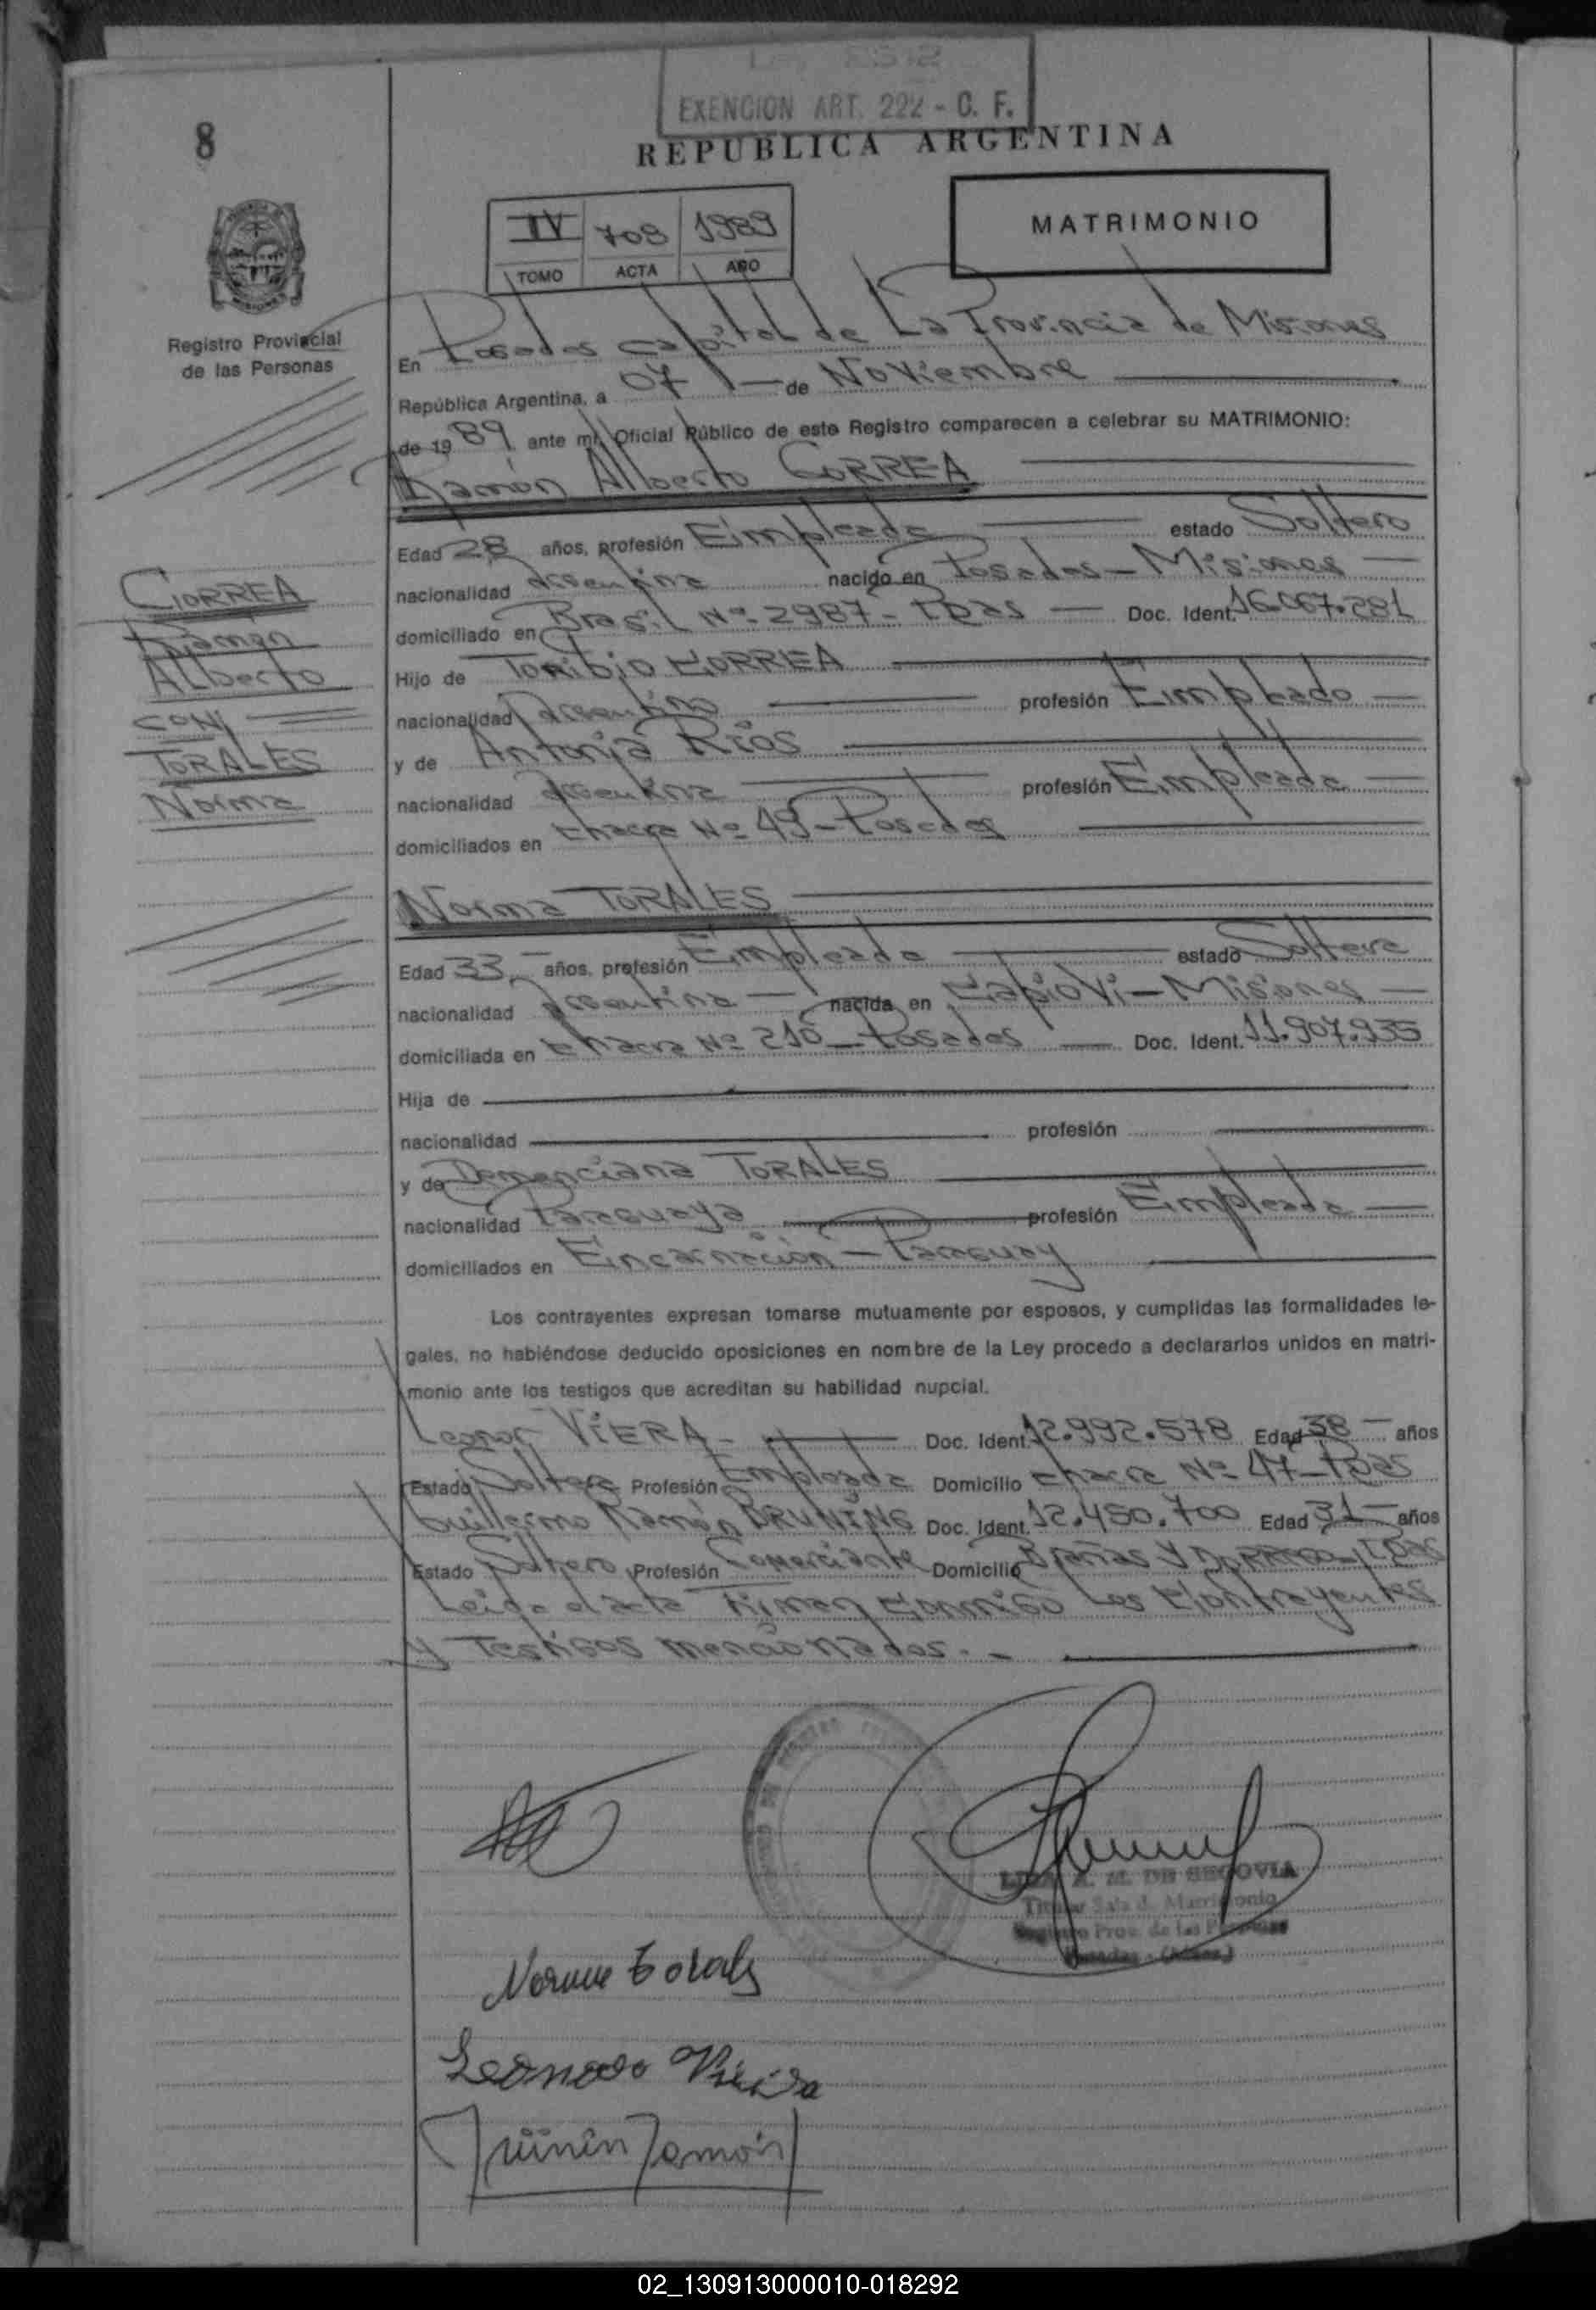 EXENCION ART. 222 - C. F.
8
REPUBLICA ARGENTINA
IV 708 1989
TOMO ACTA AÑO
MATRIMONIO
Registro Provincial
de las Personas
En Posadas capital de La Provincia de Misiones
República Argentina, a 07 de Noviembre
de 1989 ante mí, Oficial Público de este Registro comparecen a celebrar su MATRIMONIO:
Ramón Alberto CORREA
Edad 28 años, profesión Empleado estado Soltero
nacionalidad Argentina nacido en Posadas - Misiones
domiciliado en Brasil Nº 2987 - Pdas Doc. Ident. 16.067.281
Hijo de Toribio CORREA
nacionalidad Argentino profesión Empleado
y de Antonia Ríos
nacionalidad Argentina profesión Empleada
domiciliados en Chacra Nº 49 - Posadas
CORREA
Ramón
Alberto
CON
TORALES
Norma
Norma TORALES
Edad 33 años, profesión Empleada estado Soltera
nacionalidad Argentina nacida en Capioví - Misiones
domiciliada en Chacra Nº 210 - Posadas Doc. Ident. 11.907.935
Hija de
nacionalidad profesión
y de TORALES
nacionalidad Paraguaya profesión Empleada
domiciliados en Encarnación - Paraguay
Los contrayentes expresan tomarse mutuamente por esposos, y cumplidas las formalidades le-
gales, no habiéndose deducido oposiciones en nombre de la Ley procedo a declararlos unidos en matri-
monio ante los testigos que acreditan su habilidad nupcial.
Leonor VIERA Doc. Ident. 12.992.578 Edad 38 años
Estado Soltera Profesión Empleada Domicilio Chacra Nº 47 - Pdas
Guillermo Ramón Doc. Ident. 12.450.700 Edad 31 años
Estado Soltero Profesión Comerciante Domicilio
Leida el acta Firman Conmigo Los Contrayentes
y Testigos mencionados. -
A. M. DE SEGOVIA
Titular Sala d. Matrimonio
Registro Prov. de las Personas
Norma Torales
Ramón
02_130913000010-018292